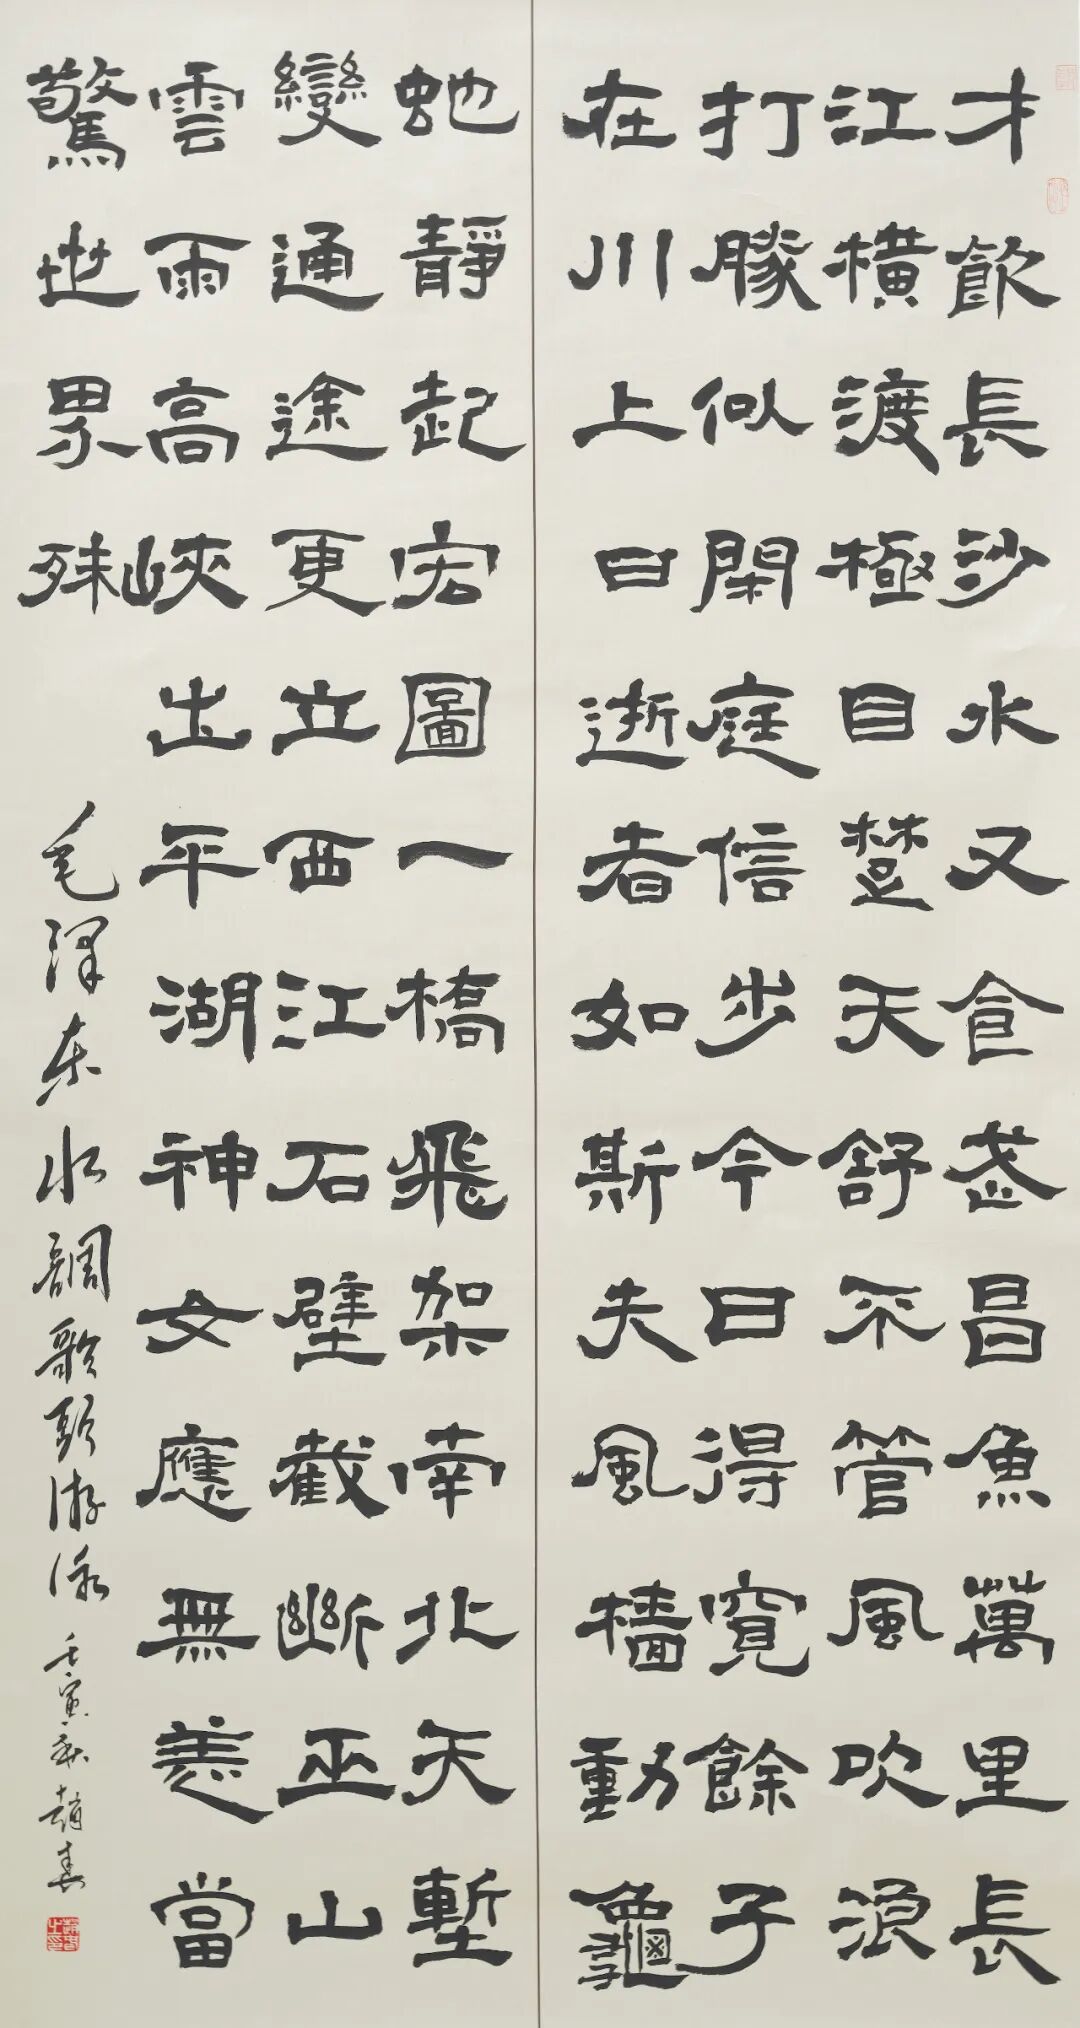 才飲長沙水又食武昌魚萬里長
江橫渡極目楚天舒不管風吹浪
打勝似閑庭信步今日得寬餘子
在川上曰逝者如斯夫風檣動龜
虵靜起宏圖一橋飛架南北天塹
變通途更立西江石壁截斷巫山
雲雨高峽出平湖神女應無恙當
驚世界殊
毛澤东水調歌頭游泳 壬寅秋趙